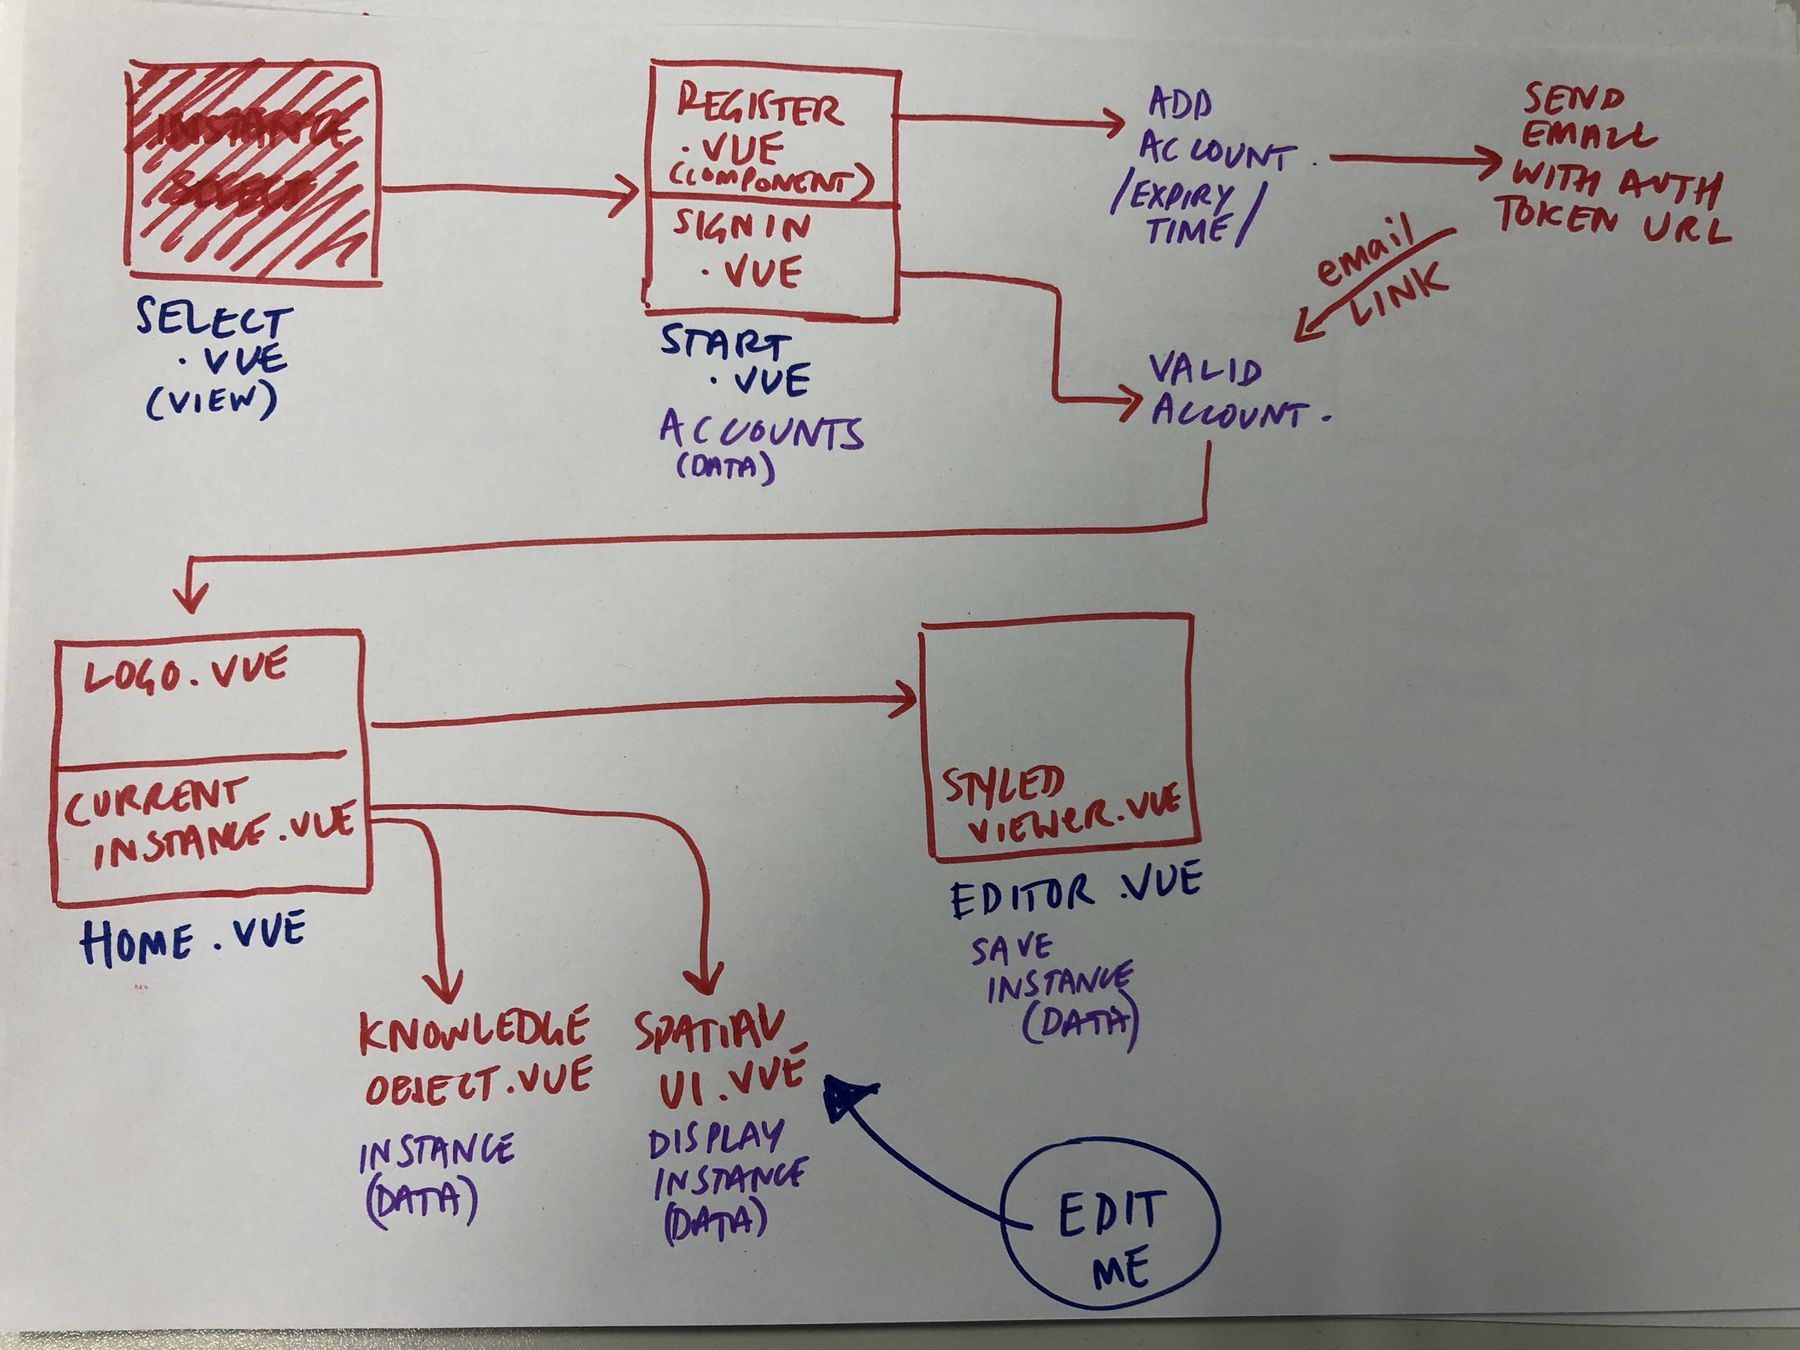 INSTANCE
SELECT
SELECT
.VUE
(VIEW)
REGISTER
.VUE
(COMPONENT)
SIGN IN
.VUE
START
.VUE
ACCOUNTS
(DATA)
ADD
ACCOUNT.
/EXPIRY/
TIME/
SEND
EMAIL
WITH AUTH
TOKEN URL
email
LINK
VALID
ACCOUNT.
LOGO.VUE
CURRENT
INSTANCE.VUE
HOME.VUE
STYLED
VIEWER.VUE
EDITOR.VUE
SAVE
INSTANCE
(DATA)
KNOWLEDGE
OBJECT.VUE
INSTANCE
(DATA)
SPATIAL
UI.VUE
DISPLAY
INSTANCE
(DATA)
EDIT
ME